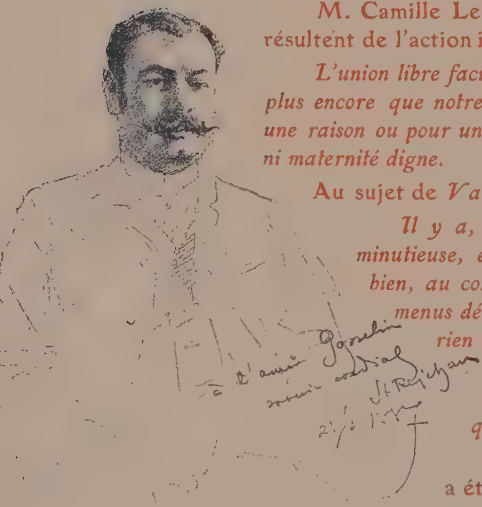 M. Camille Le
résultent de l'action i
L'union libre faci
plus encore que notre
une raison ou pour un
ni maternité digne.
Au sujet de Va
Il y a,
minutieuse, e
bien, au co
menus dé
rien
à l'ami Gosselin
souvenir cordial
q
a ét